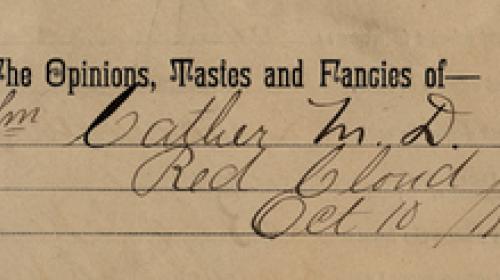 The Opinions, Tastes and Fancies of—
Wm Cather M. D.
Red Cloud
Oct 10